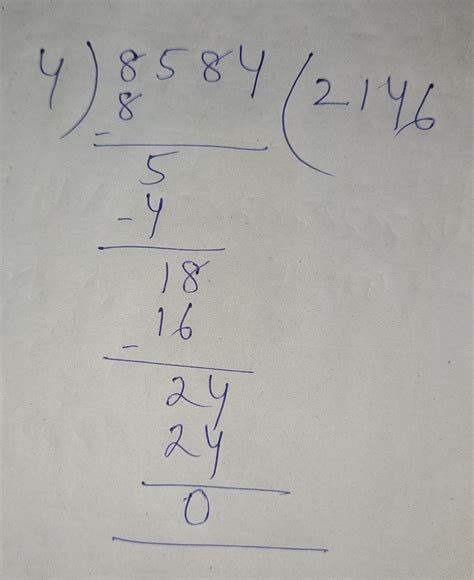 4)8584(2146
-8
5
-4
18
-16
24
24
0